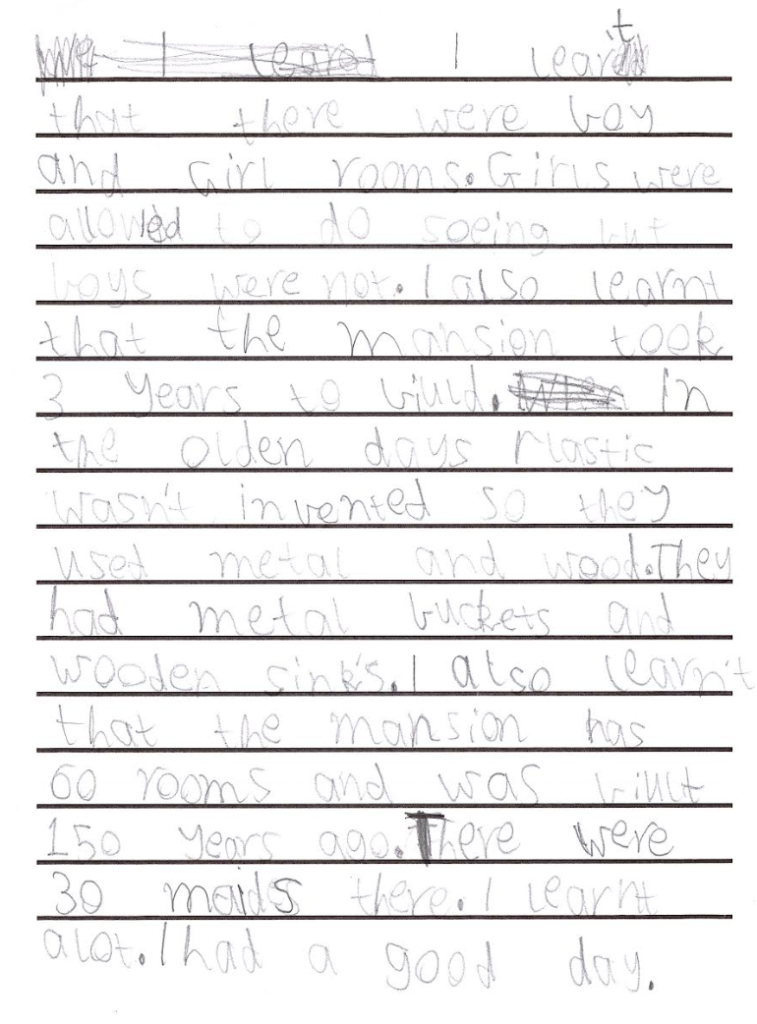 I learnt
that there were boy
and Girl rooms. Girls were
allowed to do soeing but
boys were not. I also learnt
that the mansion took
3 years to biuld. In
the olden days Plastic
wasn't invented so they
used metal and wood. They
had metal buckets and
wooden sink's. I also learn't
that the mansion has
60 rooms and was biult
150 years ago. There were
30 maids there. I learnt
alot. I had a good day.